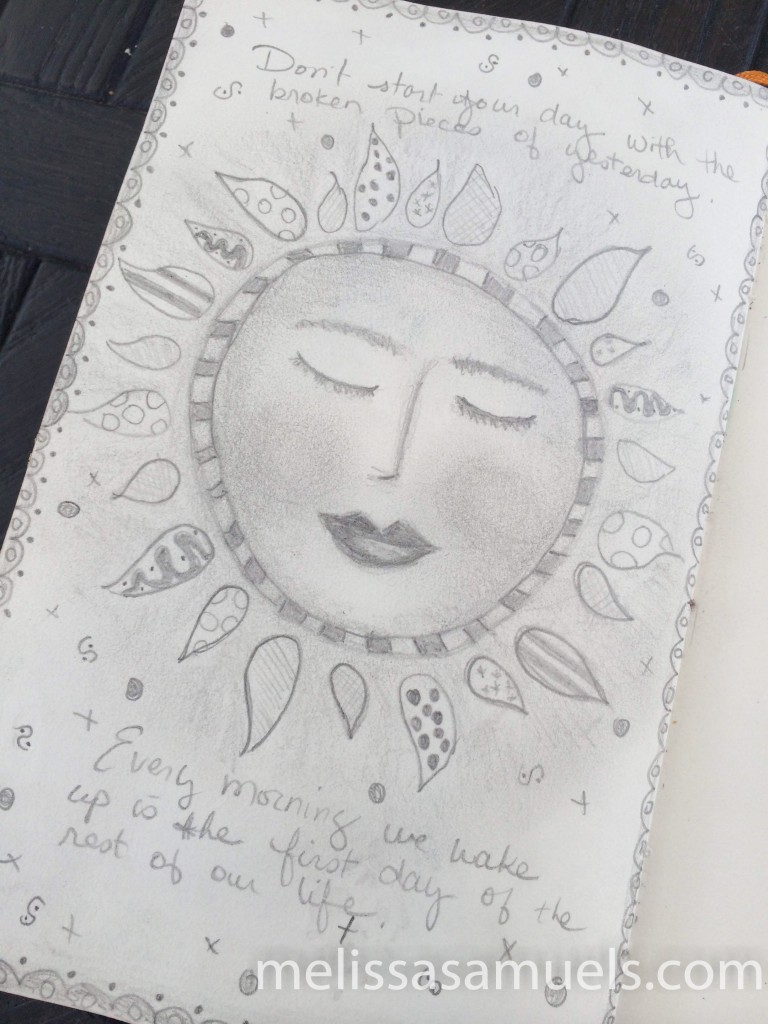 Don't start your day with the
broken pieces of yesterday.
Every morning we wake
up is the first day of the
rest of our life.
melissasamuels.com